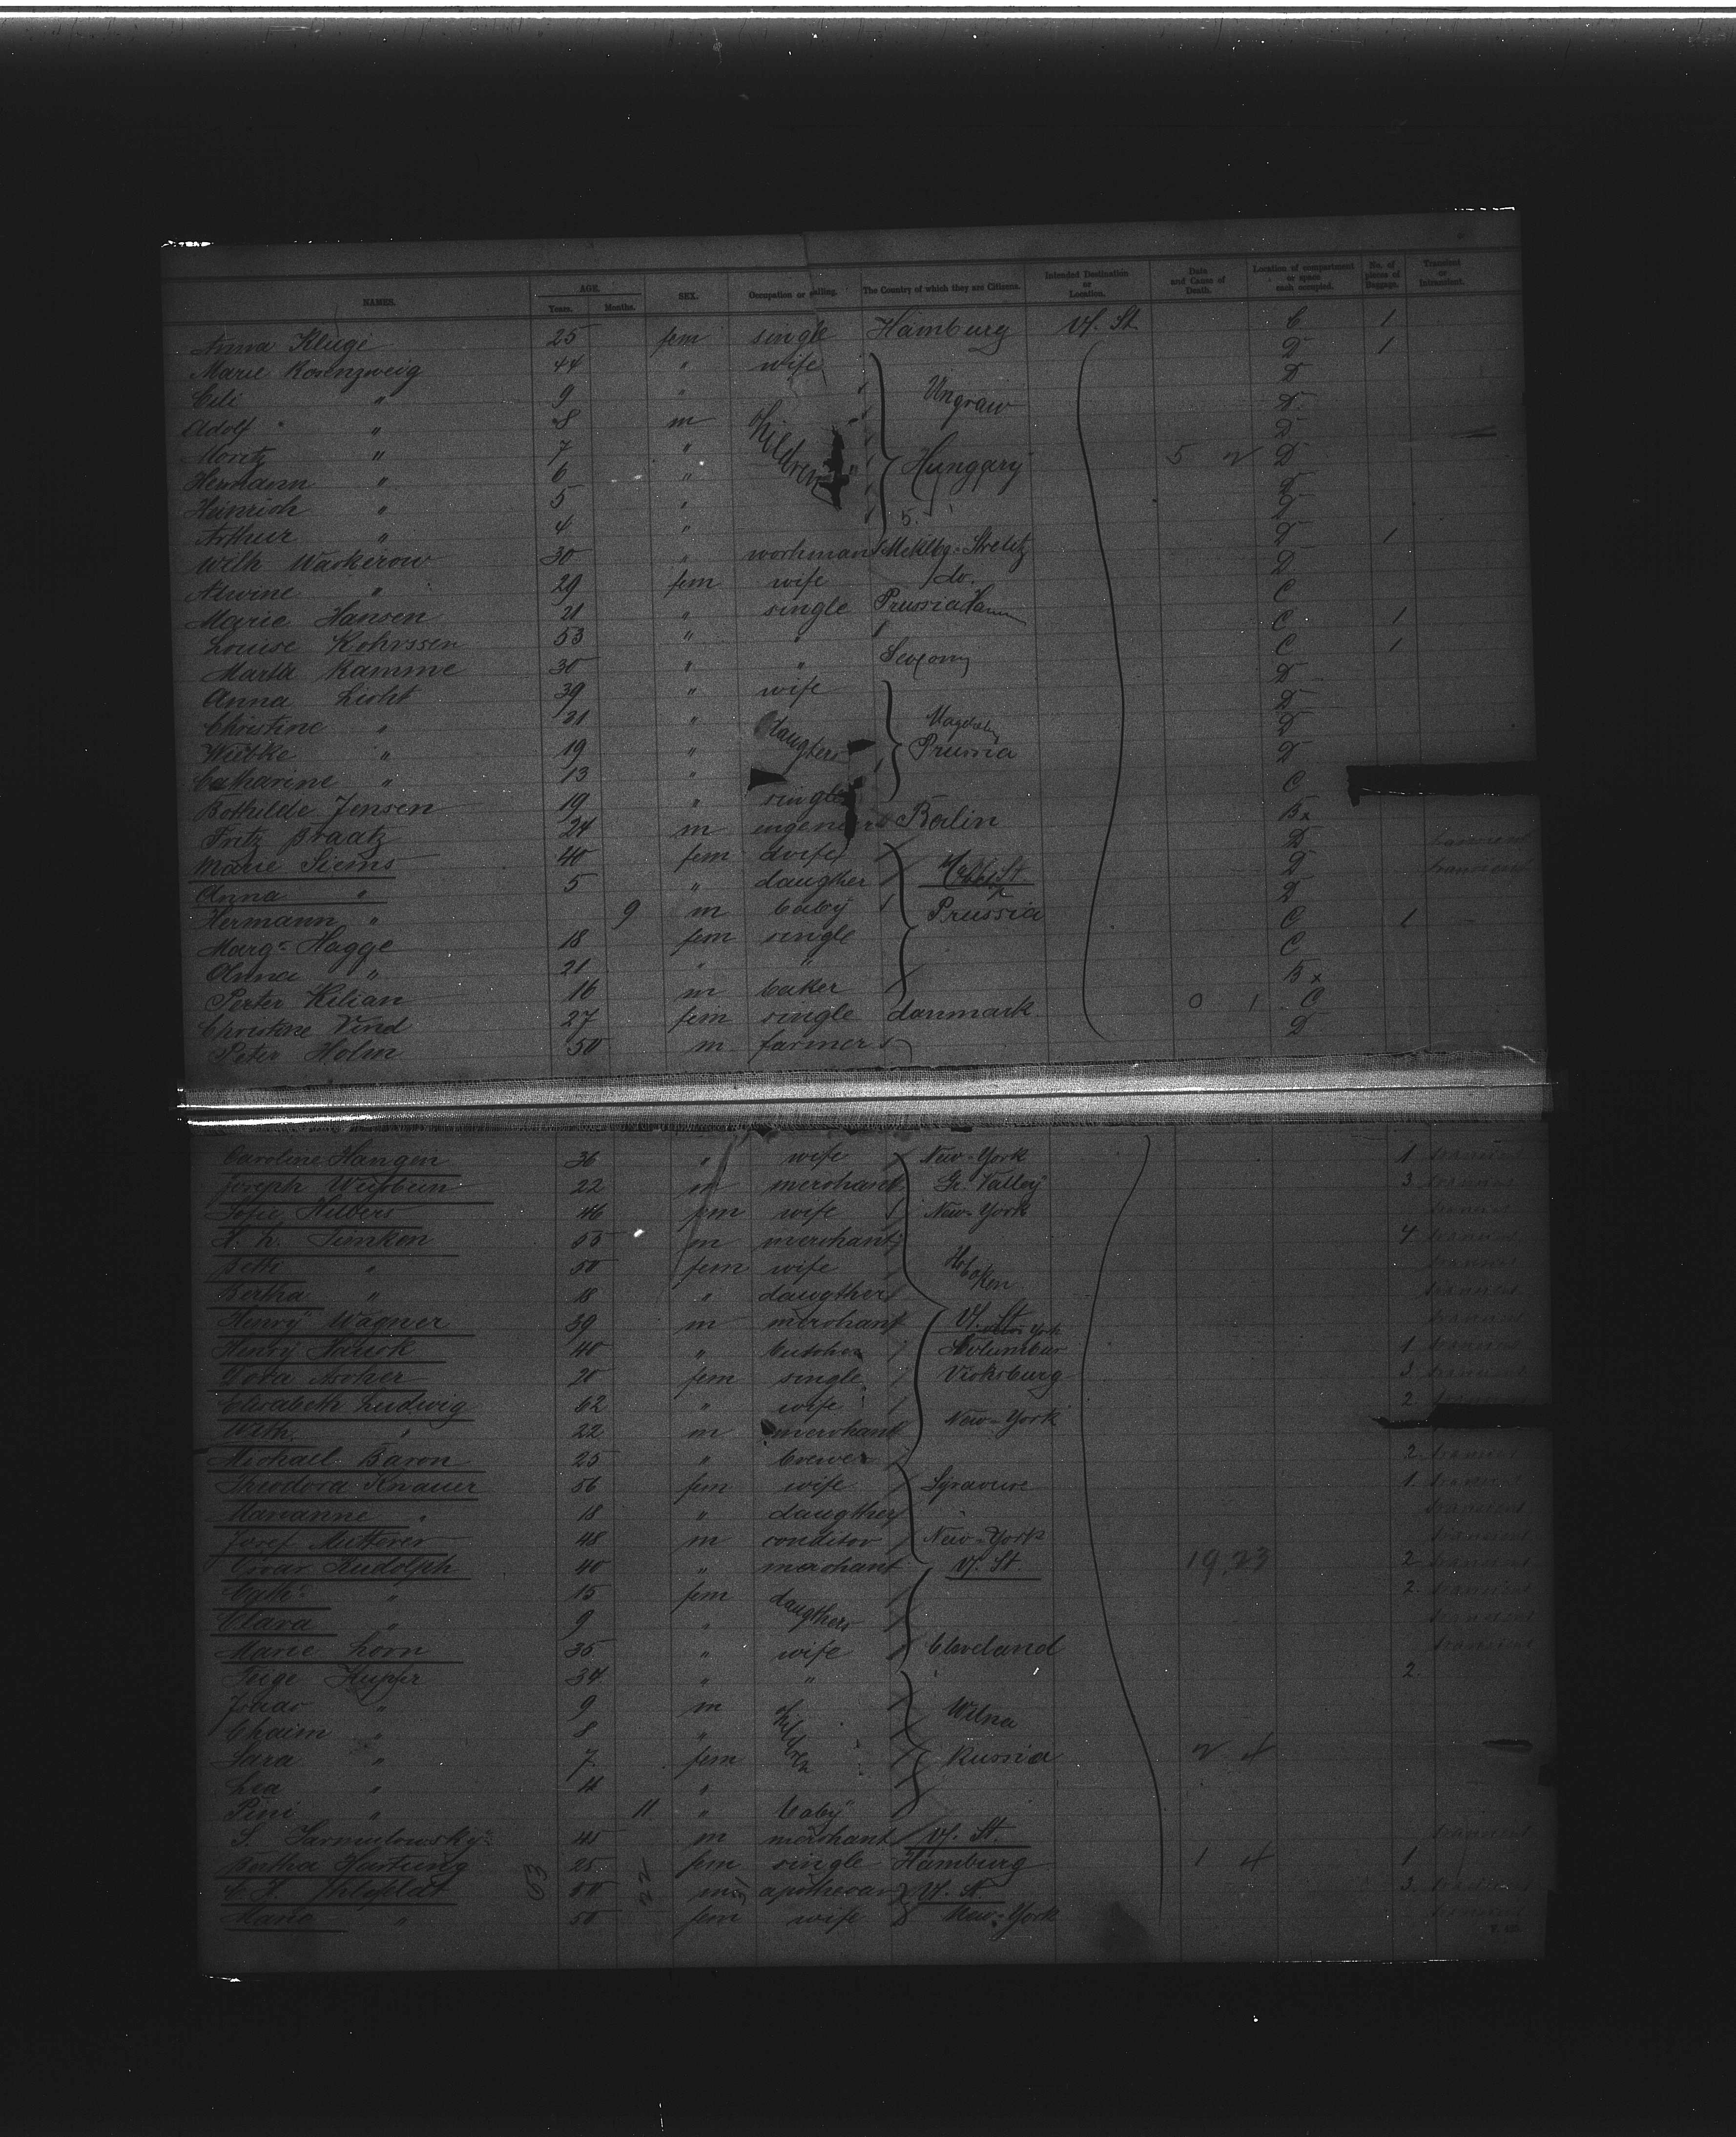 NAMES. AGE. Years. Months. SEX. Occupation or calling. The Country of which they are Citizens. Intended Destination or Location. Date and Cause of Death. Location of compartment or space each occupied. No. of pieces of Baggage. Transient or Intransient.
Anna Kluge 25 fem single Hamburg U. St. C 1
Marie Rosenzweig 44 " wife D 1
Cili " 9 " Ungraw D
Adolf " 8 m children D
Moritz " 7 " D
Hermann " 6 " Hungary 5 D
Heinrich " 5 " D
Arthur " 4 " D
Wilh Wackerow 30 " workman Meklbg-Strelitz D 1
Alwine " 29 fem wife do. D
Marie Hansen 21 " single Prussia C
Louise Rohrssen 53 " " C 1
Martha Kamme 30 " " C 1
Anna Licht 39 " wife D
Christine " 21 " daugters D
Wiebke " 19 " Prussia D
Catharine " 13 " D
Bothilde Jensen 19 " single C
Fritz Braatz 24 m Berlin Bx
Marie Siems 40 fem wife D transient
Anna " 5 " daugther U. St. D transient
Hermann " 9 m baby Prussia D
Marg. Hagge 18 fem single C 1
Anna " 21 " " C
Perter Kilian 16 m baker Bx
Christine Vind 27 fem single danmark 0 1 C
Peter Holm 50 m farmer D
Caroline Hangen 36 " wife New-York 1 transient
Joseph 22 m merchant Gr. Valley 3 transient
Sofie Hilbers 46 fem wife New-York transient
H. h. Timken 53 m merchant 4 transient
Beth " 50 fem wife Hoboken transient
Bertha " 18 " daugther transient
Henry Wagner 39 m merchant U. St. New York transient
Henry Hauck 40 " butcher Kolumbus 1 transient
Dora Ascher 20 fem single Vicksburg 3 transient
Elisabeth Ludwig 62 " wife 2
Wilh. " 22 m merchant New-York
Michael Baron 25 " brewer 2 transient
Theodora Knauer 56 fem wife 1 transient
Marianne " 18 " daugther transient
Josef Mitterer 48 m conditor New-York transient
Oscar Rudolph 40 " merchant U. St. 19.23 2 transient
Cath. " 15 fem daugthers 2 transient
Clara " 9 " transient
Marie Horn 35 " wife Cleveland transient
Feige Kupfer 34 " " 2
9 m children Wilna
Chaim " 8 "
Sara " 7 fem Russia
Lea " 4 "
Pini " 11 " baby
S. Jarmulowsky 45 m merchant U. St. transient
Bertha Hartung 25 fem single Hamburg 1 4 1
53 50 22 m U. St. 3 transient
Marie " 50 fem wife New-York transient